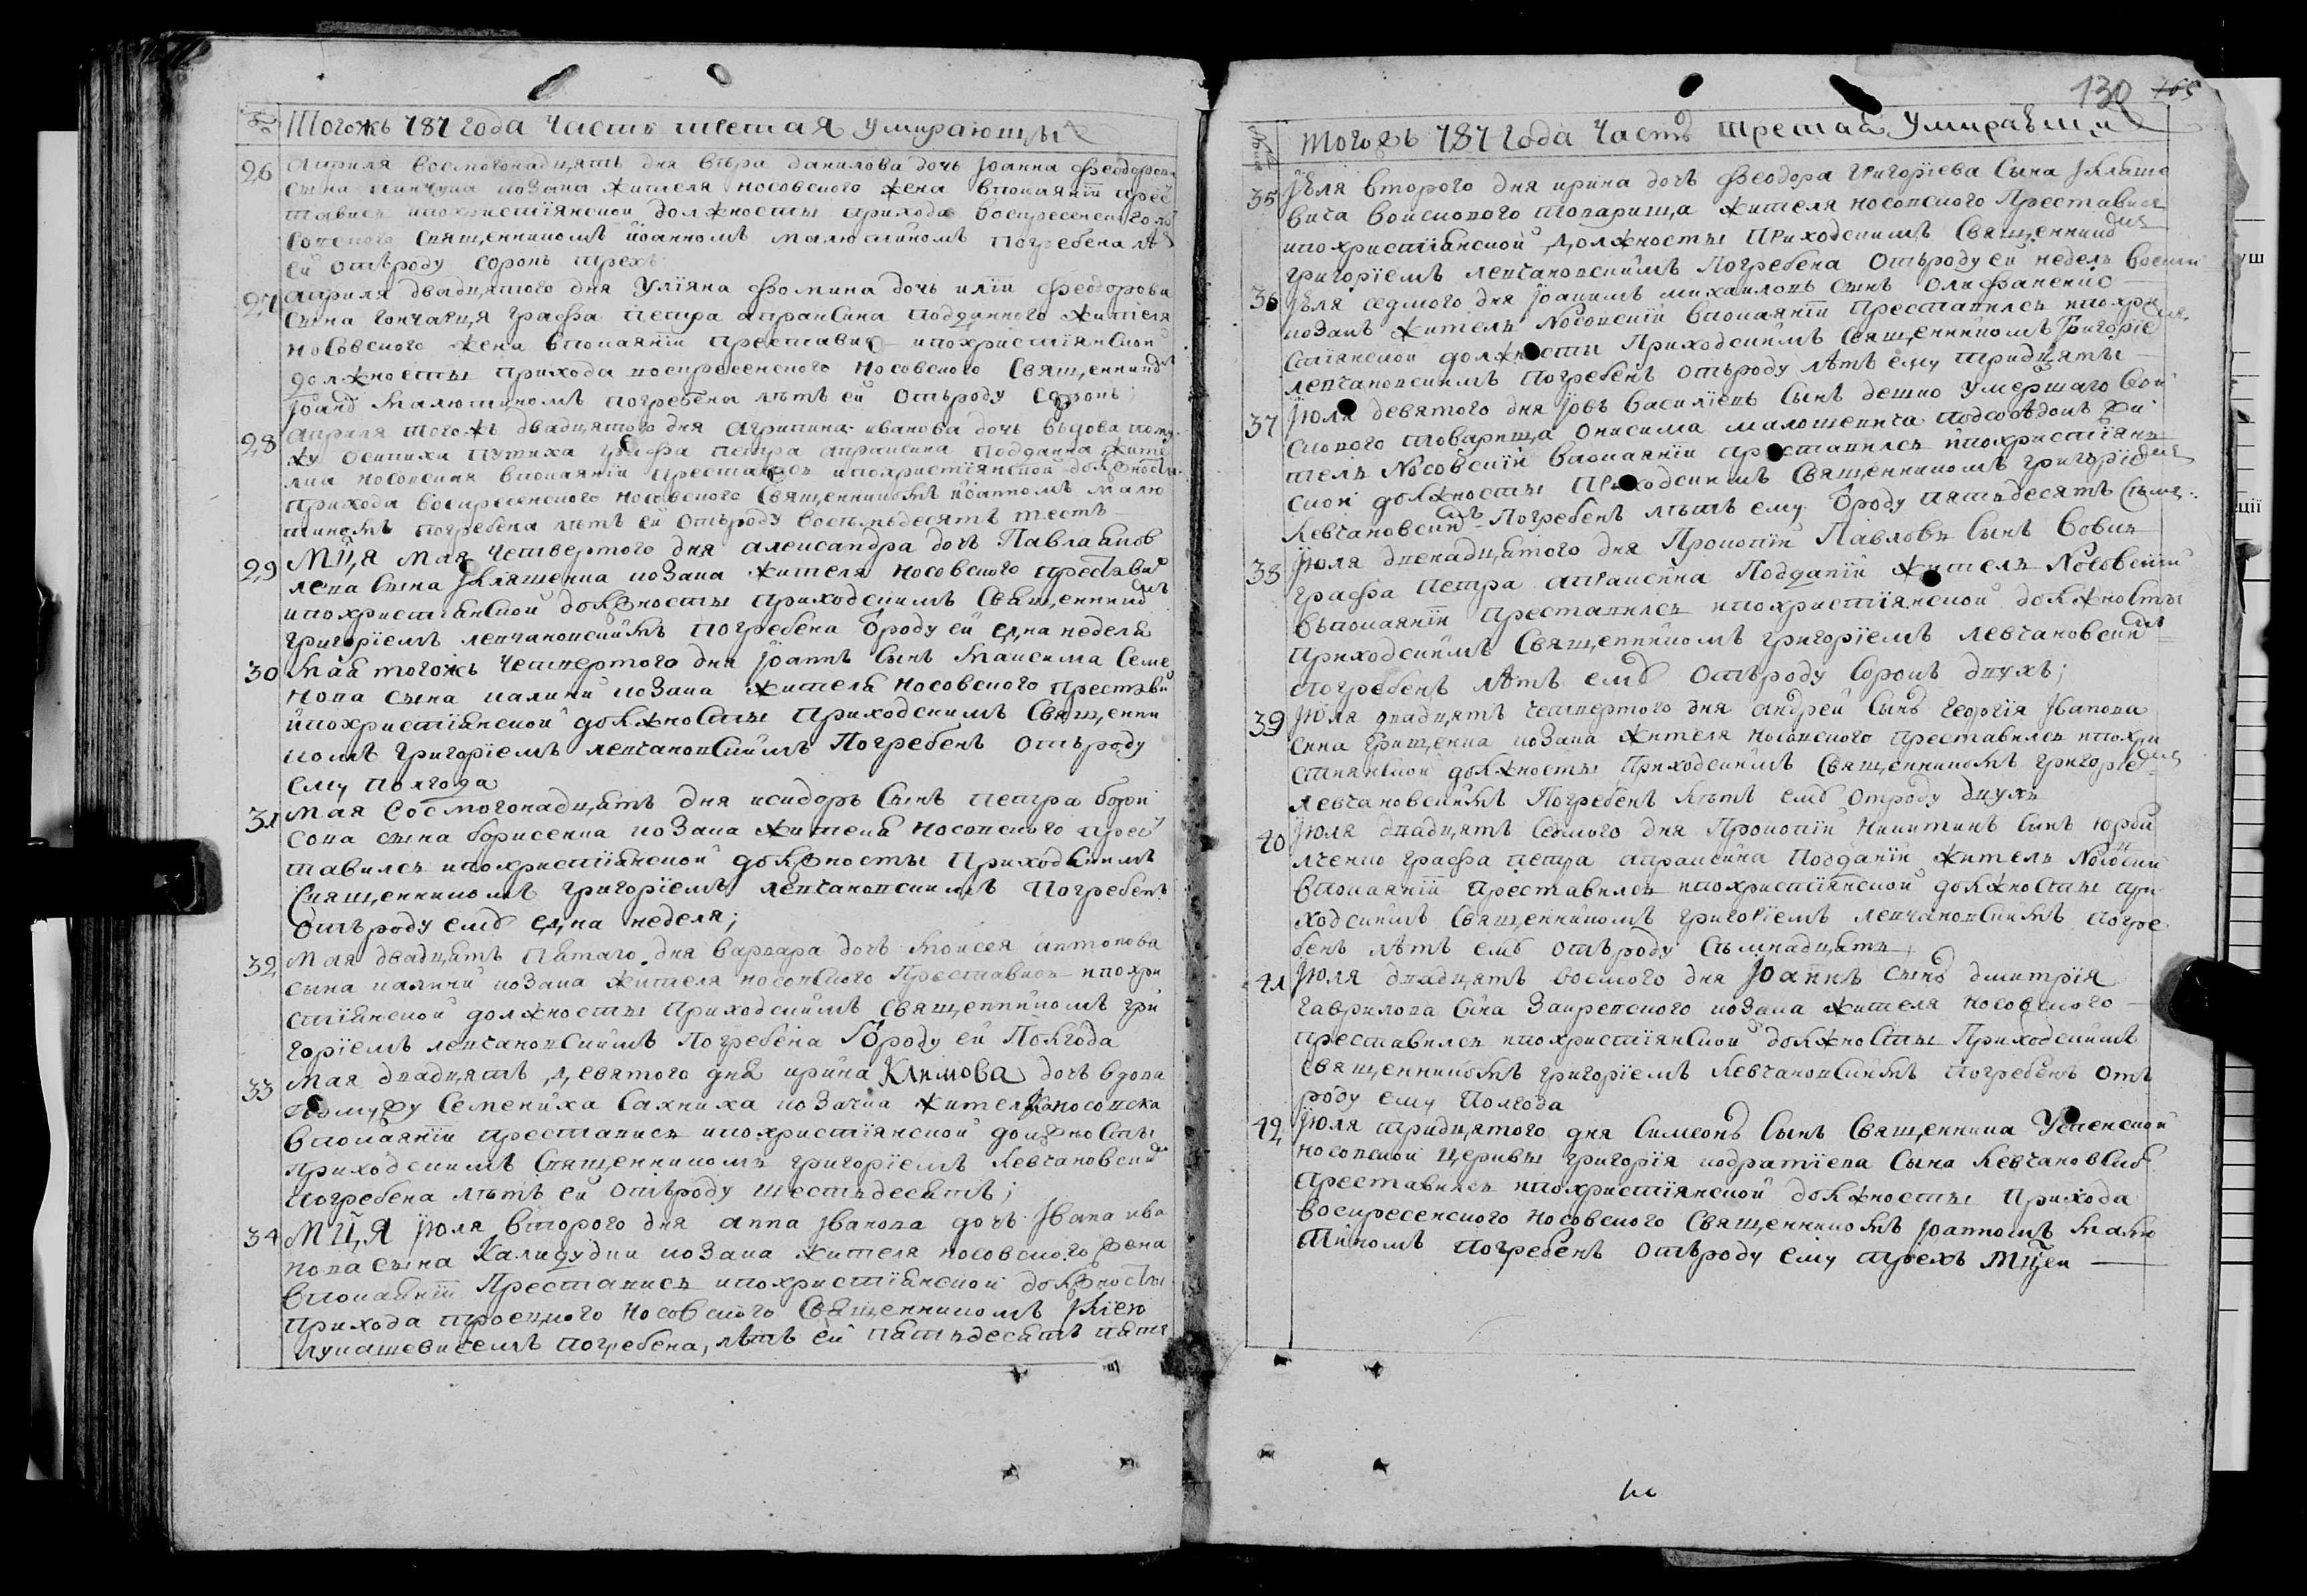 Тогожъ 787 года Часть третая умирающыя
26
Априля восмогонадцять дня вѣра данилова дочь Іоанна феодорова
сына козака жителя носовского жена впокаяніи прес
тавис ипохристіянской должносты прихода воскресенского но
совского священникомъ іоанномъ малютиномъ погребена лѣ
ей отъроду сорокъ трехъ
27
Априля двадцятого дня Улїяна фомина дочь илїи феодорова
сына гончарця графа петра апраксина подданного жителя
носовского жена впокаяніи преставис ипохристіянской
должносты прихода воскресенского носовского священник
Іоан малютиномъ погребена лѣтъ ей отъроду сорокъ;
28
Априля тогожъ двадцятого дня Агрипина иванова дочь вдова пому
жу осипиха графа петра апраксина подданна жите
лка носовская впокаяніи преставись ипохристіянской должносты
прихода воскресенского носовского священникомъ іоанномъ малю
тиномъ погребена лѣтъ ей отъроду восемьдесятъ шесть
29
Мця мая четвертого дня александра дочь Павла яков
лева сына Ілляшенка козака жителя носовского престави
ипохристіянской должносты приходскимъ священник
григоріемъ левчановскимъ погребена ѿроду ей една неделя
30
Мая тогожъ четвертого дня Іоаннъ сынъ максима семе
нова сына калини козака жителя носовского престави
ипохристіянской должносты приходскимъ священни
комъ григоріемъ левчановскимъ погребенъ отъроду
ему полгода
31
Мая восмогонадцять дня исидоръ сынъ петра бори
сова сына борисенка козака жителя носовского прес
тавилсь ипохристіянской должносты приходскимъ
священникомъ григоріемъ левчановскимъ погребенъ
отъроду ему една неделя;
32
Мая двадцять пятаго дня варвара дочь моисея антонова
сына калини козака жителя носовского преставись ипохри
стіянской должносты приходскимъ священникомъ гри
горіемъ левчановскимъ погребена ѿроду ей полгода
33
Мая двадцять девятого дня ирина Климова дочь вдова
помужу Семениха Сахниха козачка жителка носовска
впокаяніи преставись ипохристіянской должносты
приходскимъ священникомъ григоріемъ левчановски
погребена лѣтъ ей отъроду шестьдесятъ;
34
Мця Іюля второго дня анна Іванова дочь Івана ива
нова сына Калидудки козака жителя носовского жена
впокаяніи преставись ипохристіянской должносты
прихода троецкого носовского священникомъ Іллею
лукашевичемъ погребена, лѣтъ ей пятьдесятъ пять
130 165
Тогожъ 787 года Часть третая умиравшия
35
Іюля второго дня ирина дочь феодора григоріева сына Ілляше
вича войскового товарища жителя носовского преставися
ипохристіянской должносты приходскимъ священник
григоріемъ левчановскимъ погребена отъроду ей недель восьми
36
Іюля седмого дня Іоакимъ михаиловъ сынъ олифаненко
козакъ житель носовскій впокаяніи преставилсь ипохри
стіянской должносты приходскимъ священникомъ григоріе
левчановскимъ погребенъ отъроду лѣтъ ему тридцять
37
Іюля девятого дня Іовъ василіевъ сынъ дешко умершаго вой
скового товарища онисима малошенича подсосѣдокъ жи
тель носовскій впокаяніи преставилсь ипохристіян
ской должносты приходскимъ священникомъ григоріе
левчановски погребенъ лѣтъ ему ѿроду пятьдесятъ
38
Іюля двенадцятого дня Прокопій Павловъ сынъ
графа петра апраксина подданій житель носовскій
впокаяніи преставилсь ипохристіянской должносты
приходскимъ священникомъ григоріемъ левчановски
погребенъ лѣтъ ему отъроду сорокъ двухъ;
39
Іюля двадцять четвертого дня андрей сынъ георгія Іванова
сина грищенка козака жителя носовского преставилсь ипохри
стиянской должносты приходскимъ священникомъ григоріе
левчановскимъ погребенъ лѣтъ ему отроду двухъ
40
Іюля двадцять седмого дня Прокопій никитинъ сынъ
графа петра апраксина подданій житель носовскій
впокаяніи преставилсь ипохристіянской должносты при
ходскимъ священникомъ григоріемъ левчановскимъ погре
бенъ лѣтъ ему отъроду съмнадцять
41
Іюля двадцять восмого дня Іоаннъ сынъ дмитрія
гаврилова сына закревского козака жителя носовского
преставилсь ипохристіянской должносты приходскимъ
священникомъ григоріемъ левчановскимъ погребенъ отъ
роду ему полгода
42
Іюля тридцятого дня симеонъ сынъ священника успенской
носовской церквы григорія кодратіева сына левчановско
преставилсь ипохристіянской должносты прихода
воскресенского носовского священникомъ Іоанномъ малю
тиномъ погребенъ отъроду ему трехъ мцей